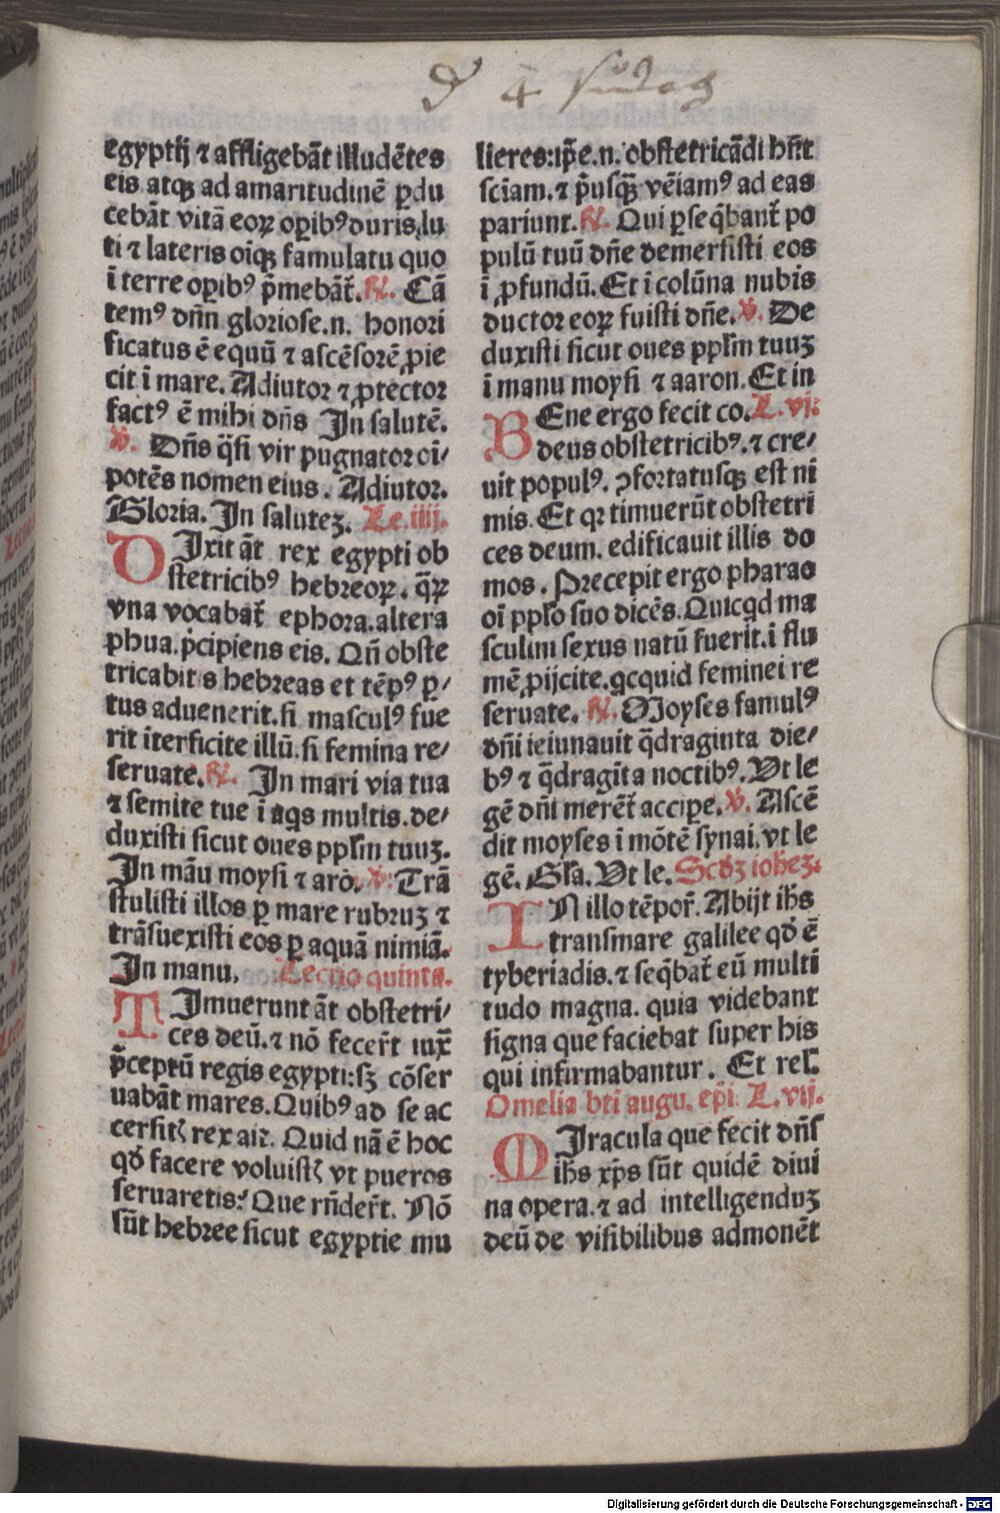 egyptij ⁊ affligebāt illudētes
eis atqꝫ ad amaritudinē ꝑdu
cebāt vitā eoꝝ oꝑibꝰ duris lu
ti ⁊ lateris oīqꝫ famulatu quo
ī terre oꝑibꝰ p̄mebāt᷑. ℟. Cā
temꝰ dn̄n gloriose.n. honori
ficatus ē equū ⁊ ascēsorē ꝓie
cit ī mare. Adiutor ⁊ ꝓtector
factꝰ ē mihi dn̄s In salutē.
℣. Dn̄s q̄si vir pugnator oī/
potēs nomen eius. Adiutor.
Gloria. In saluteꝫ. Le.iiij.
DIxit āt rex egypti ob
stetricibꝰ hebreoꝝ. q̄ꝝ
vna vocabat᷑ ephora. altera
phua. p̄cipiens eis. Qn̄ obste
tricabitis hebreas et tēpꝰ ꝑ/
tus aduenerit. si masculꝰ fue
rit īterficite illū. si femina re/
seruate. ℟. In mari via tua
⁊ semite tue ī aqͣs multis. de/
duxisti sicut oues ppl̄m tuuꝫ.
In māu moysi ⁊ arō. ℣. Trā
stulisti illos ꝑ mare rubruꝫ ⁊
trāsuexisti eos ꝑ aquā nimiā.
In manu. Lectio quinta.
TImuerunt āt obstetri/
ces deū. ⁊ nō fecer̄t iux̄
p̄ceptū regis egypti: sꝫ cōser
uabāt mares. Quibꝰ ad se ac
cersitꝭ rex ait. Quid nā ē hoc
qd̄ facere voluistꝭ vt pueros
seruaretis: Que rn̄der̄t. Nō
sūt hebree sicut egyptie mu
d' 4
lieres: ip̄e.n. obstetricādi hn̄t
sciam. ⁊ p̄usqꝫ̄ vēiamꝰ ad eas
pariunt. ℟. Qui ꝑseq̄bant᷑ po
pulū tuū dn̄e demersisti eos
ī ꝓfundū. Et ī colūna nubis
ductor eoꝝ fuisti dn̄e. ℣. De
duxisti sicut oues ppl̄m tuuꝫ
ī manu moysi ⁊ aaron. Et in
BEne ergo fecit co. L.vj.
deus obstetricibꝰ. ⁊ cre/
uit populꝰ. ꝯfortatusqꝫ est ni
mis. Et qꝛ timuerūt obstetri
ces deum. edificauit illis do
mos. Precepit ergo pharao
oī pplo suo dicēs. Quicqd ma
sculini sexus natū fuerit. ī flu
mē ꝓijcite. qcquid feminei re
seruate. ℟. Moyses famulꝰ
dn̄i ieiunauit q̄draginta die/
bꝰ ⁊ q̄dragīta noctibꝰ. Vt le
gē dn̄i merēt᷑ accipe. ℣. Ascē
dit moyses ī mōtē synai. vt le
gē. Gl̄a. Vt le. Scd̄ꝫ ioheꝫ.
IN illo tēpor̄. Abijt ihs̄
transmare galilee qd̄ ē
tyberiadis. ⁊ seq̄bat᷑ eū multi
tudo magna. quia videbant
signa que faciebat super his
qui infirmabantur. Et rel̄.
Omelia bt̄i augu. ep̄i. L.vij.
MIracula que fecit dn̄s
ihs̄ xp̄s sūt quidē diui
na opera. ⁊ ad intelligenduꝫ
deū de visibilibus admonēt
Digitalisierung gefördert durch die Deutsche Forschungsgemeinschaft - DFG